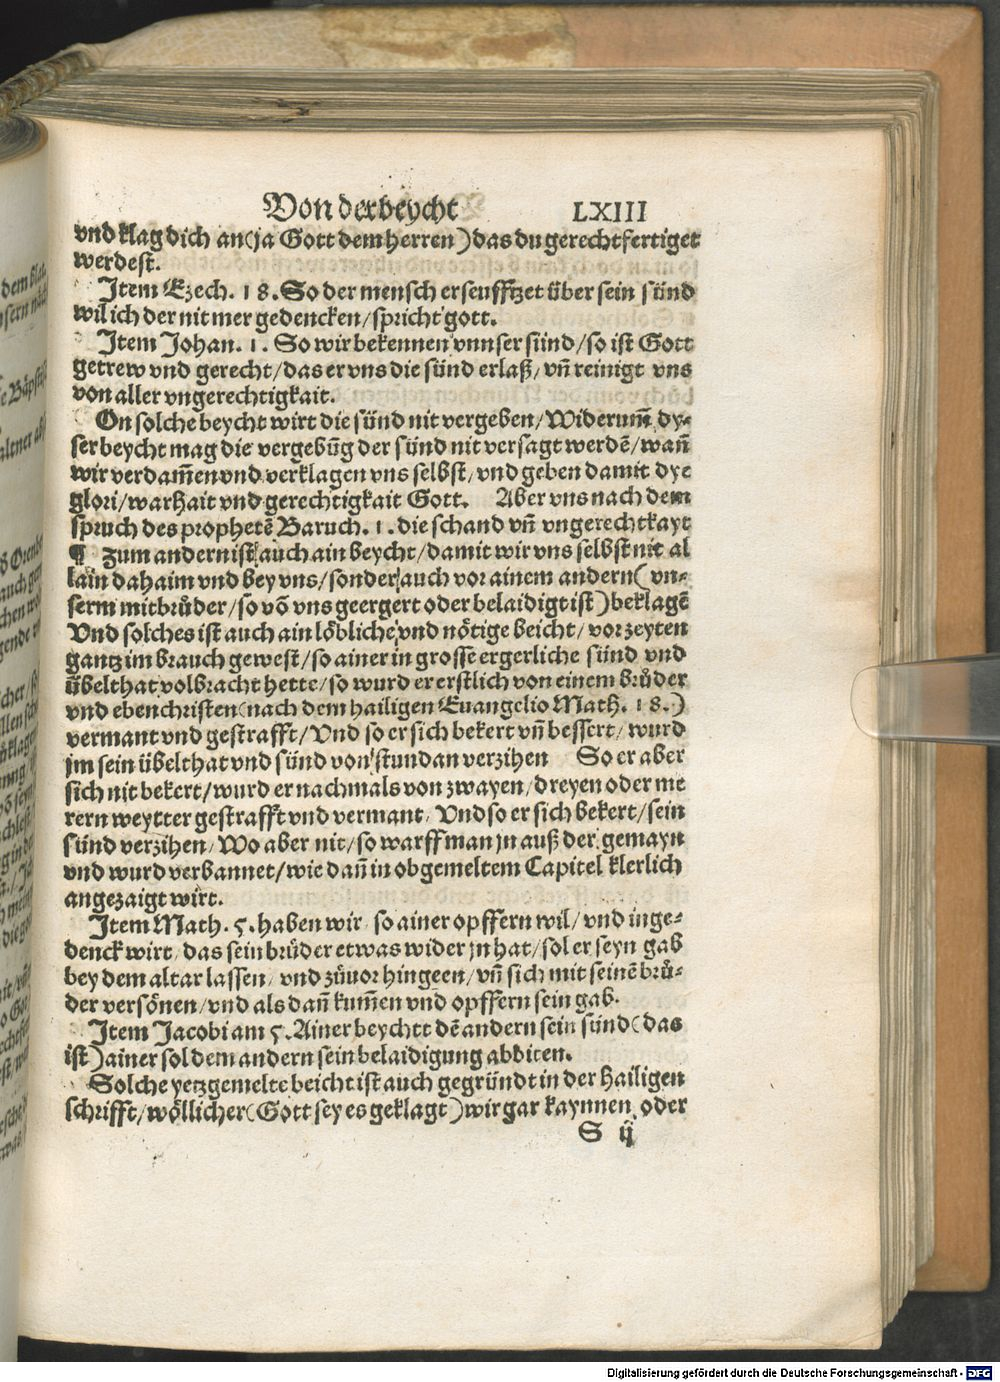 Von der beycht LXIII
vnd klag dich an (ja Gott dem herren) das du gerechtfertiget
werdest.
Item Ezech. 18. So der mensch erseufftzet über sein sünd
wil ich der nit mer gedencken/ spricht gott.
Item Johan. 1. So wir bekennen vnnser sünd/ so ist Gott
getrew vnd gerecht/ das er vns die sünd erlaß/ vn̄ reinigt vns
von aller vngerechtigkait.
On solche beycht wirt die sünd nit vergeben/ Widerum̄ dy-
ser beycht mag die vergebūg der sünd nit versagt werdē/ wan̄
wir verdam̄en vnd verklagen vns selbst/ vnd geben damit dye
glori/ warhait vnd gerechtigkait Gott. Aber vns nach dem
spruch des prophetē Baruch. 1. die schand vn̄ vngerechtkayt
¶ Zum andern ist auch ain beycht/ damit wir vns selbst nit al
lain dahaim vnd bey vns/ sonder auch vor ainem andern (vn-
serm mitbrůder/ so vō vns geergert oder belaidigt ist) beklagē
Vnd solches ist auch ain löbliche vnd nötige beicht/ vor zeyten
gantz im brauch gewest/ so ainer in grosse ergerliche sünd vnd
übelthat volbracht hette/ so wurd er erstlich von einem brůder
vnd ebenchristen (nach dem hailigen Euangelio Math. 18.)
vermant vnd gestrafft/ Vnd so er sich bekert vn̄ bessert/ wurd
jm sein übelthat vnd sünd von stundan verzihen So er aber
sich nit bekert/ wurd er nachmals von zwayen/ dreyen oder me
rern weytter gestrafft vnd vermant/ Vnd so er sich bekert/ sein
sünd verzihen/ Wo aber nit/ so warff man jn auß der gemayn
vnd wurd verbannet/ wie dan̄ in obgemeltem Capitel klerlich
angezaigt wirt.
Item Math. 5. haben wir/ so ainer opffern wil/ vnd inge-
denck wirt/ das sein brůder etwas wider jn hat/ sol er seyn gab
bey dem altar lassen/ vnd zůuor hingeen/ vn̄ sich mit seinē brů-
der versönen/ vnd als dan̄ kum̄en vnd opffern sein gab.
Item Jacobi am 5. Ainer beychtt dē andern sein sünd (das
ist) ainer sol dem andern sein belaidigung abbiten.
Solche yetzgemelte beicht ist auch gegründt in der hailigen
schrifft/ wöllicher (Gott sey es geklagt) wir gar kaynnen/ oder
S ij
Digitalisierung gefördert durch die Deutsche Forschungsgemeinschaft - DFG